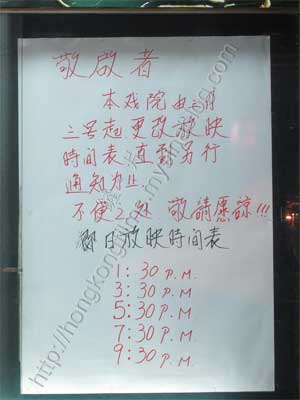 敬啟者
本戲院由二月
三号起更改放映
時間表.直到另行
通知為止.
不便之处.敬請愿諒!!!
即日放映時間表
1:30 P.M.
3:30 P.M
5:30 P.M
7:30 P.M.
9:30 P.M.